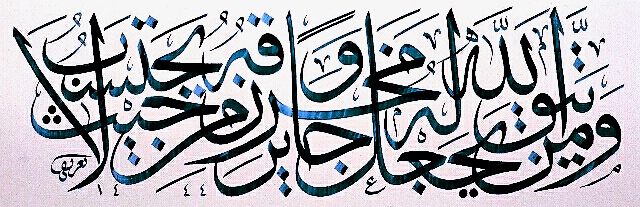 ومن يتق الله يجعل له مخرجا ويرزقه من حيث لا يحتسب
١٤٤٤